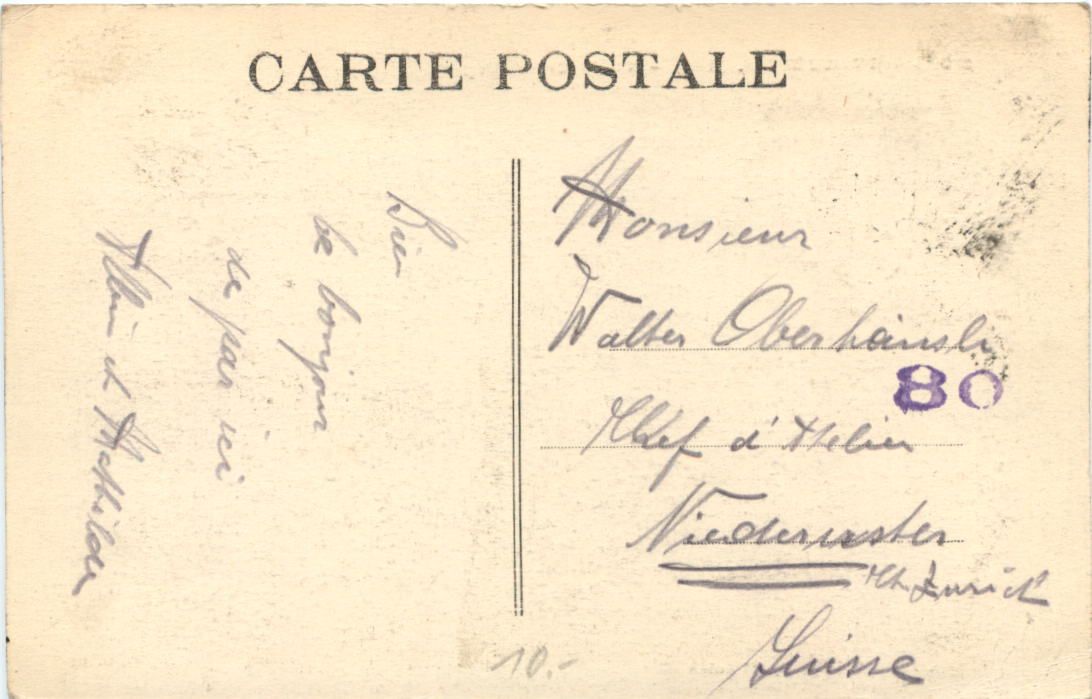 CARTE POSTALE
Bien
le bonjour
de par ici
Albin et Mathilde
Monsieur
Walter Oberhänsli
80
Chef d'Atelier
Niederuster
Kt. Zurich
Suisse
10.-